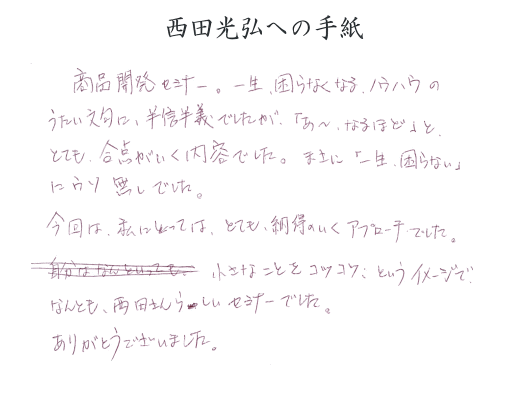 西田光弘への手紙
商品開発セミナー。一生、困らなくなる、ノウハウの
うたい文句に、半信半義でしたが、「あ〜、なるほど」と、
とても、合点がいく内容でした。まさに「一生、困らない」
にウソ無しでした。
今回は、私にとっては、とても、納得のいくアプローチでした。
自分はなんといっても、小さなことをコツコツ、というイメージで、
なんとも、西田さんらしいセミナーでした。
ありがとうございました。